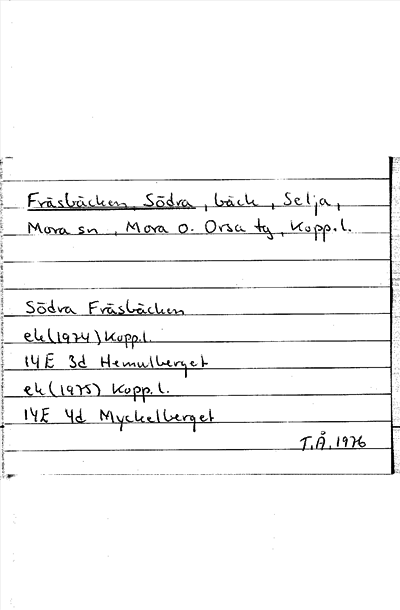 Fräsbäcken, Södra, bäck, Selja,
Mora sn, Mora o. Orsa tg, Kopp.l.
Södra Fräsbäcken
ek (1974) Kopp.l.
14E 3d Hemulberget
ek (1975) Kopp.l.
14E 4d Myckelberget
T.Å. 1976